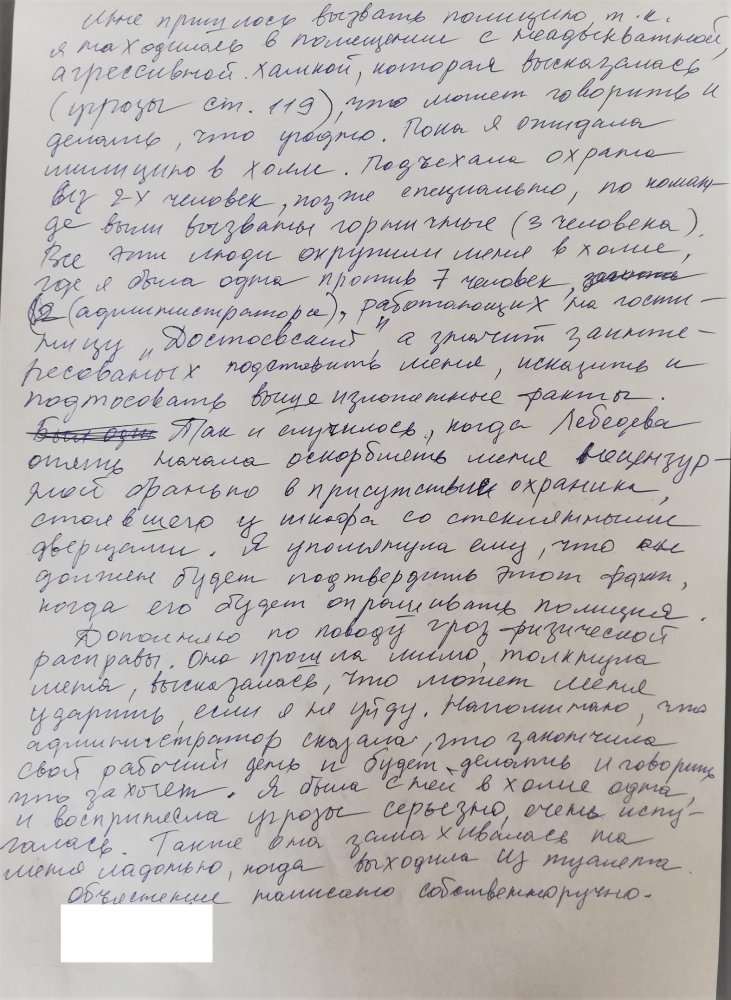 Мне пришлось вызвать полицию, т.к.
я находилась в помещении с неадыкватной,
агрессивной хамкой, которая высказалась
(угрозы ст. 119), что может говорить и
делать, что угодно. Пока я ожидала
милицию в холле. Подъехала охрана
из 2-х человек, позже специально, по коман-
де были вызваны горничные (3 человека).
Все эти люди окружили меня в холле,
где я была одна против 7 человек,
(администратора), работающих на гости-
ницу "Достоевский" а значит заинте-
ресованых подставить меня, исказить и
подтосовать выше изложенные факты.
Так и случилось, когда Лебедева
опять начала оскорблять меня нецензур-
ной бранью в присутствие охраника,
стоявшего у шкафа со стеклянными
дверцами. Я упомянула ему, что он
должен будет подтвердить этот факт,
когда его будет опрашивать полиция.
Дополняю по поводу гроз физической
расправы. Она прошла мимо, толкнула
меня, высказалась, что может меня
ударить, если я не уйду. Напоминаю, что
администратор сказала, что закончила
свой рабочий день и будет делать и говорить
что захочет. Я была с ней в холле одна,
и восприняла угрозы серьезно, очень испу-
галась. Также она замахивалась на
меня ладонью, когда выходила из туалета.
Объяснение написано собственноручно.